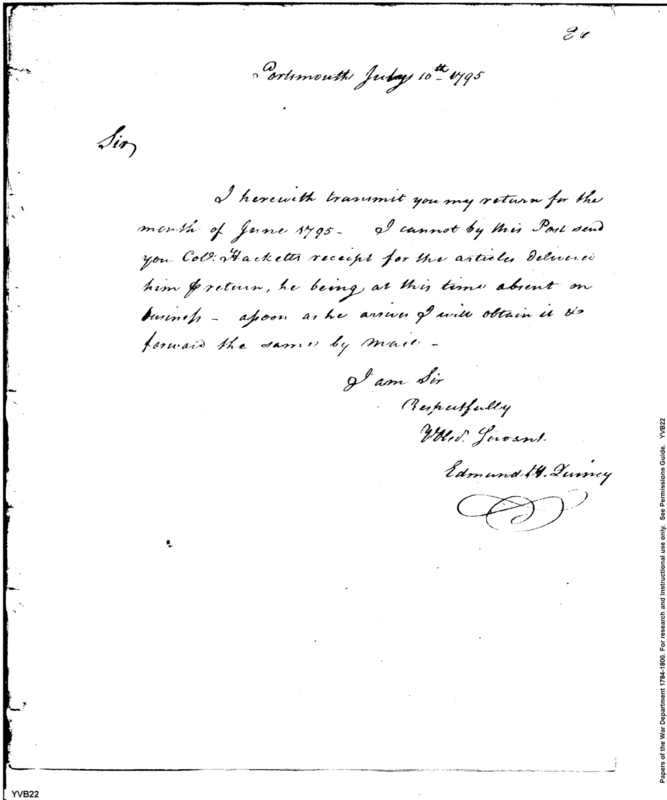 Portsmouth July 10th 1795
Sir,
I herewith transmit you my return for the
month of June 1795 - I cannot by this Post send
you Colo. Hacketts receipt for the articles delivered
him ⅌ return, he being at this time absent on
business - assoon as he arrives I will obtain it &
forward the same by mail -
I am Sir
Respectfully
Yr Obed. Servant
Edmund H. Quincy
YVB22
Papers of the War Department 1784-1800. For research and instructional use only. See Permissions Guide. YVB22